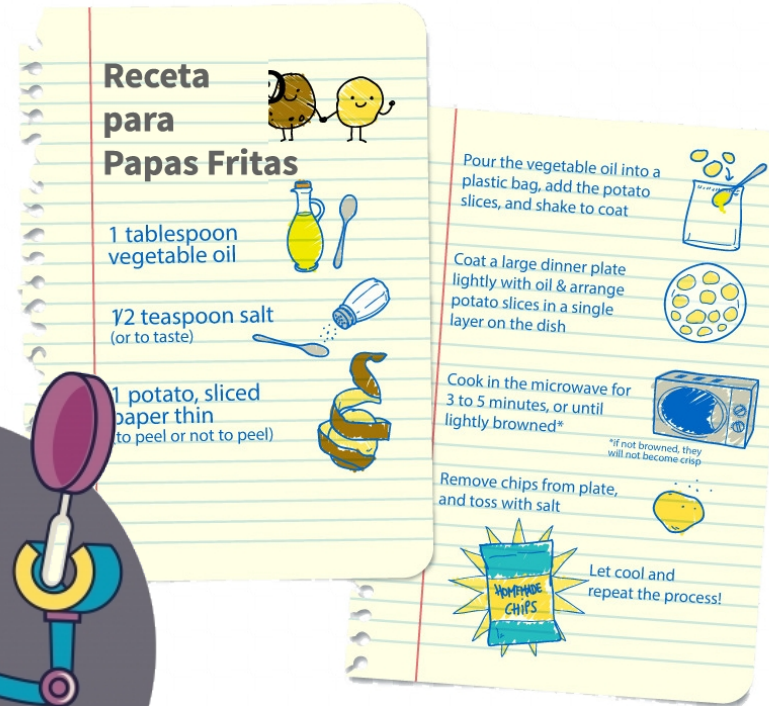 Receta
para
Papas Fritas
1 tablespoon
vegetable oil
1/2 teaspoon salt
(or to taste)
1 potato, sliced
paper thin
(to peel or not to peel)
Pour the vegetable oil into a
plastic bag, add the potato
slices, and shake to coat
Coat a large dinner plate
lightly with oil & arrange
potato slices in a single
layer on the dish
Cook in the microwave for
3 to 5 minutes, or until
lightly browned*
*if not browned, they
will not become crisp
Remove chips from plate,
and toss with salt
HOMEMADE
CHIPS
Let cool and
repeat the process!